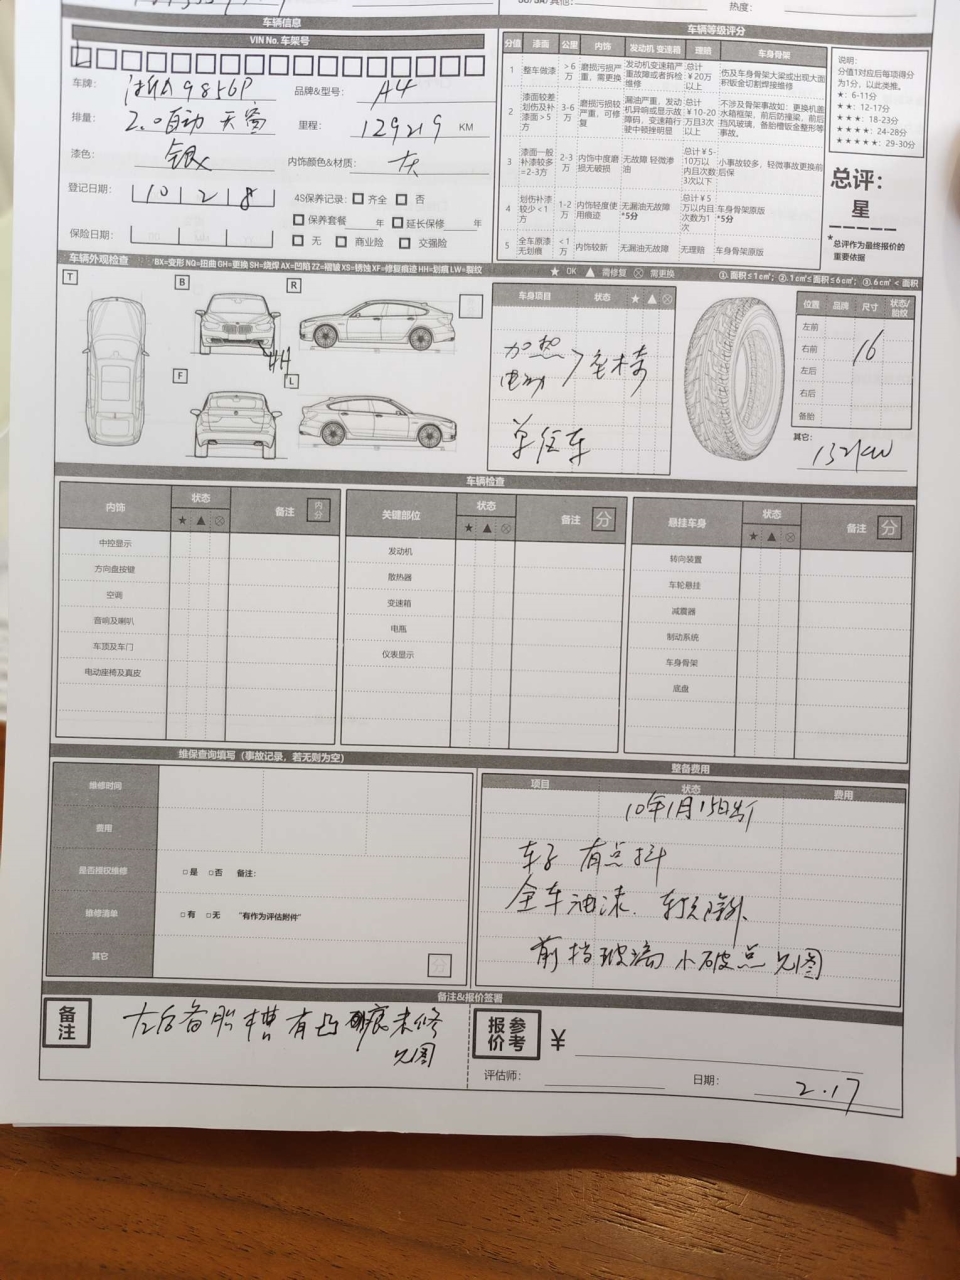 热度：
车辆信息
VIN No. 车架号
车牌： 浙A9856P 品牌&型号： A4
排量： 2.0自动 天窗 里程： 129219 KM
漆色： 银 内饰颜色&材质： 灰
登记日期： 10 | 2 | 8 4S保养记录： 齐全 否
保养套餐 年 延长保修 年
保险日期： 无 商业险 交强险
车辆等级评分
分值 漆面 公里 内饰 发动机 变速箱 理赔 车身骨架
1 整车做漆 >6万 磨损污损严重，需更换 发动机变速箱严重故障或者拆检维修 总计￥20万以上 伤及车身骨架大梁或出现大面积钣金切割焊接维修
2 漆面较差 划伤及补漆面>5方 3-6万 磨损污损较严重，可修复 漏油严重，发动机异响或显示故障码，变速箱行驶中顿挫明显 总计￥10-20万且3次以上 不涉及骨架事故如：更换机盖水箱框架，前后防撞梁，前后挡风玻璃、备胎槽钣金整形等事故。
3 漆面一般 补漆较多=2-3方 2-3万 内饰中度磨损无破损 无故障 轻微渗油 总计￥5-10万以内且次数3次以下 小事故较多，轻微事故更换前后保
4 划伤补漆较少<1方 1-2万 内饰轻度使用痕迹 无漏油无故障 *5分 总计￥5万以内且次数为1次 车身骨架原版 *5分
5 全车原漆无划痕 <1万 内饰较新 无漏油无故障 无理赔 车身骨架原版
说明：
分值1对应后每项得分为1分，以此类推。
★：6-11分
★★：12-17分
★★★：18-23分
★★★★：24-28分
★★★★★：29-30分
总评：
星
*总评作为最终报价的重要依据
车辆外观检查 BX=变形 NQ=扭曲 GH=更换 SH=烧焊 AX=凹陷 ZZ=褶皱 XS=锈蚀 XF=修复痕迹 HH=划痕 LW=裂纹 ★ OK ▲ 需修复 ⊗ 需更换 ①. 面积≤1c㎡; ②. 1c㎡≤面积≤6c㎡; ③. 6c㎡<面积
T B R
F L
HH
车身项目 状态 ★ ▲ ⊗
加热
电动 > 座椅
单位车
位置 品牌 尺寸 状态/胎纹
左前
右前 16
左后
右后
备胎
其它： 132kw
车辆检查
内饰 状态 ★ ▲ ⊗ 备注 内分
中控显示
方向盘按键
空调
音响及喇叭
车顶及车门
电动座椅及真皮
关键部位 状态 ★ ▲ ⊗ 备注 分
发动机
散热器
变速箱
电瓶
仪表显示
悬挂车身 状态 ★ ▲ ⊗ 备注 分
转向装置
车轮悬挂
减震器
制动系统
车身骨架
底盘
维保查询填写（事故记录，若无则为空）
维修时间
费用
是否授权维修 □是 □否 备注：
维修清单 □有 □无 "有作为评估附件"
其它 分
整备费用
项目 状态 费用
10年1月15日出厂
车子 有点抖
全车油漆.
前挡玻璃 小破点 见图
备注&报价签署
备注
左后备胎槽有凸痕未修
见图
报价参考 ￥
评估师： 日期： 2.17